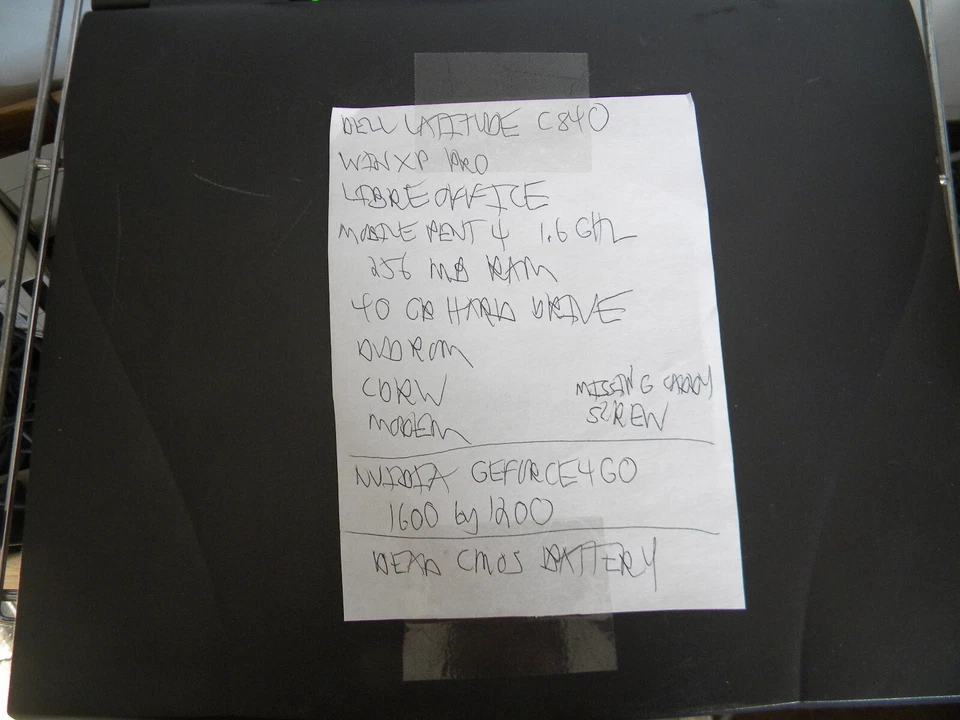 DELL LATITUDE C840
WIN XP PRO
LIBRE OFFICE
MOBILE PENT 4 1.6 GHZ
256 MB RAM
40 GB HARD DRIVE
DVD ROM
CDRW
MODEM
MISSING CADDY
SCREW
NVIDIA GEFORCE4GO
1600 by 1200
DEAD CMOS BATTERY